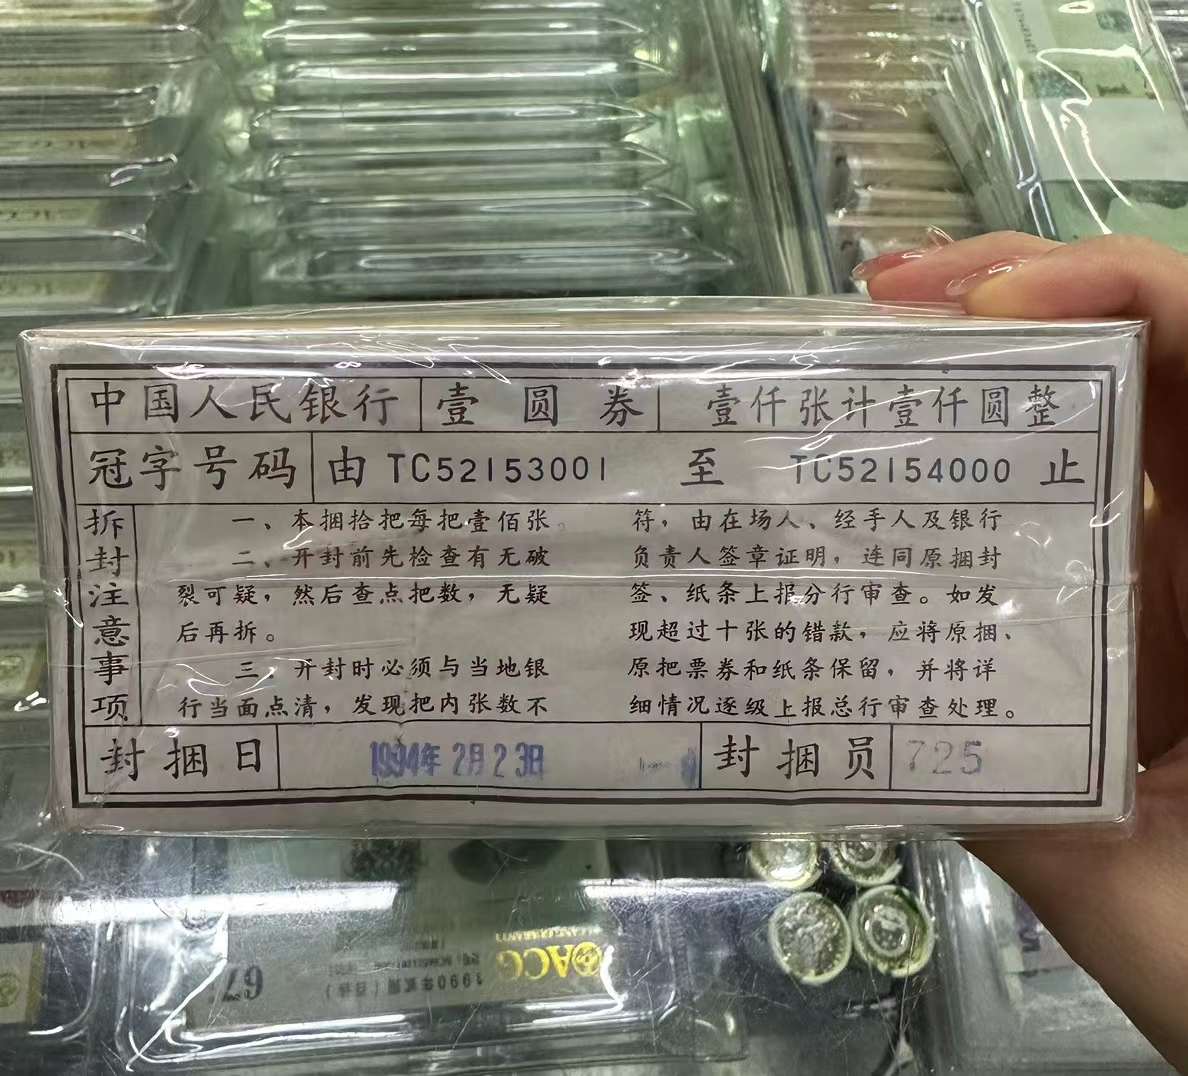 中国人民银行 壹圆券 壹仟张计壹仟圆整
冠字号码 由 TC52153001 至 TC52154000 止
拆封注意事项
一、本捆拾把每把壹佰张。
二、开封前先检查有无破
裂可疑，然后查点把数，无疑
后再拆。
三、开封时必须与当地银
行当面点清，发现把内张数不
符，由在场人、经手人及银行
负责人签章证明，连同原捆封
签、纸条上报分行审查。如发
现超过十张的错款，应将原捆、
原把票券和纸条保留，并将详
细情况逐级上报总行审查处理。
封捆日 1994年2月23日 封捆员 725
ACG
1990年贰圆
67